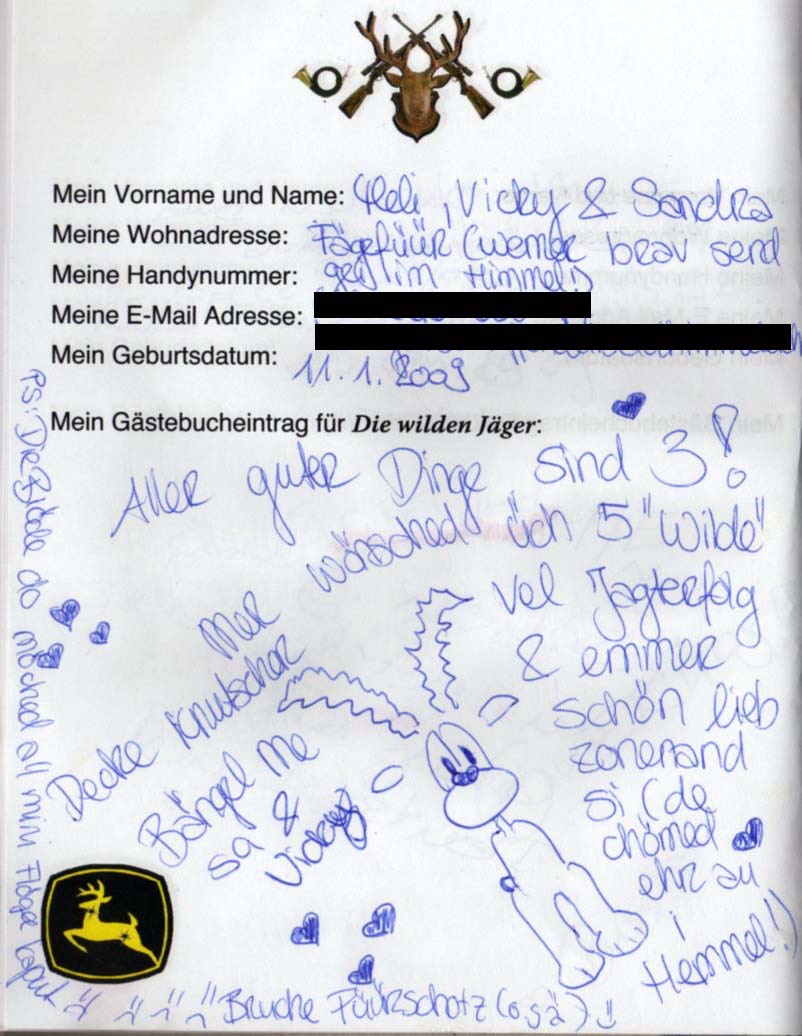 Mein Vorname und Name: Heli, Vicky & Sandra
Meine Wohnadresse: Fägefüür (wemer brav send
Meine Handynummer: geg im Himmel)
Meine E-Mail Adresse:
Mein Geburtsdatum: 11.1.2009
Mein Gästebucheintrag für Die wilden Jäger:
Aller guter Dinge sind 3!
Mer wönsched üch 5 "Wilde"
vel Jagterfolg
& emmer
schön lieb
zonenand
si (de
chömed
ehr au
i
Hemmel!)
Decke Knutscher
Bängel me
sa &
Vicky
PS: Die Bilder do möched all mini Flögel kaputt
Bruche Füürschotz (o.s.ä)